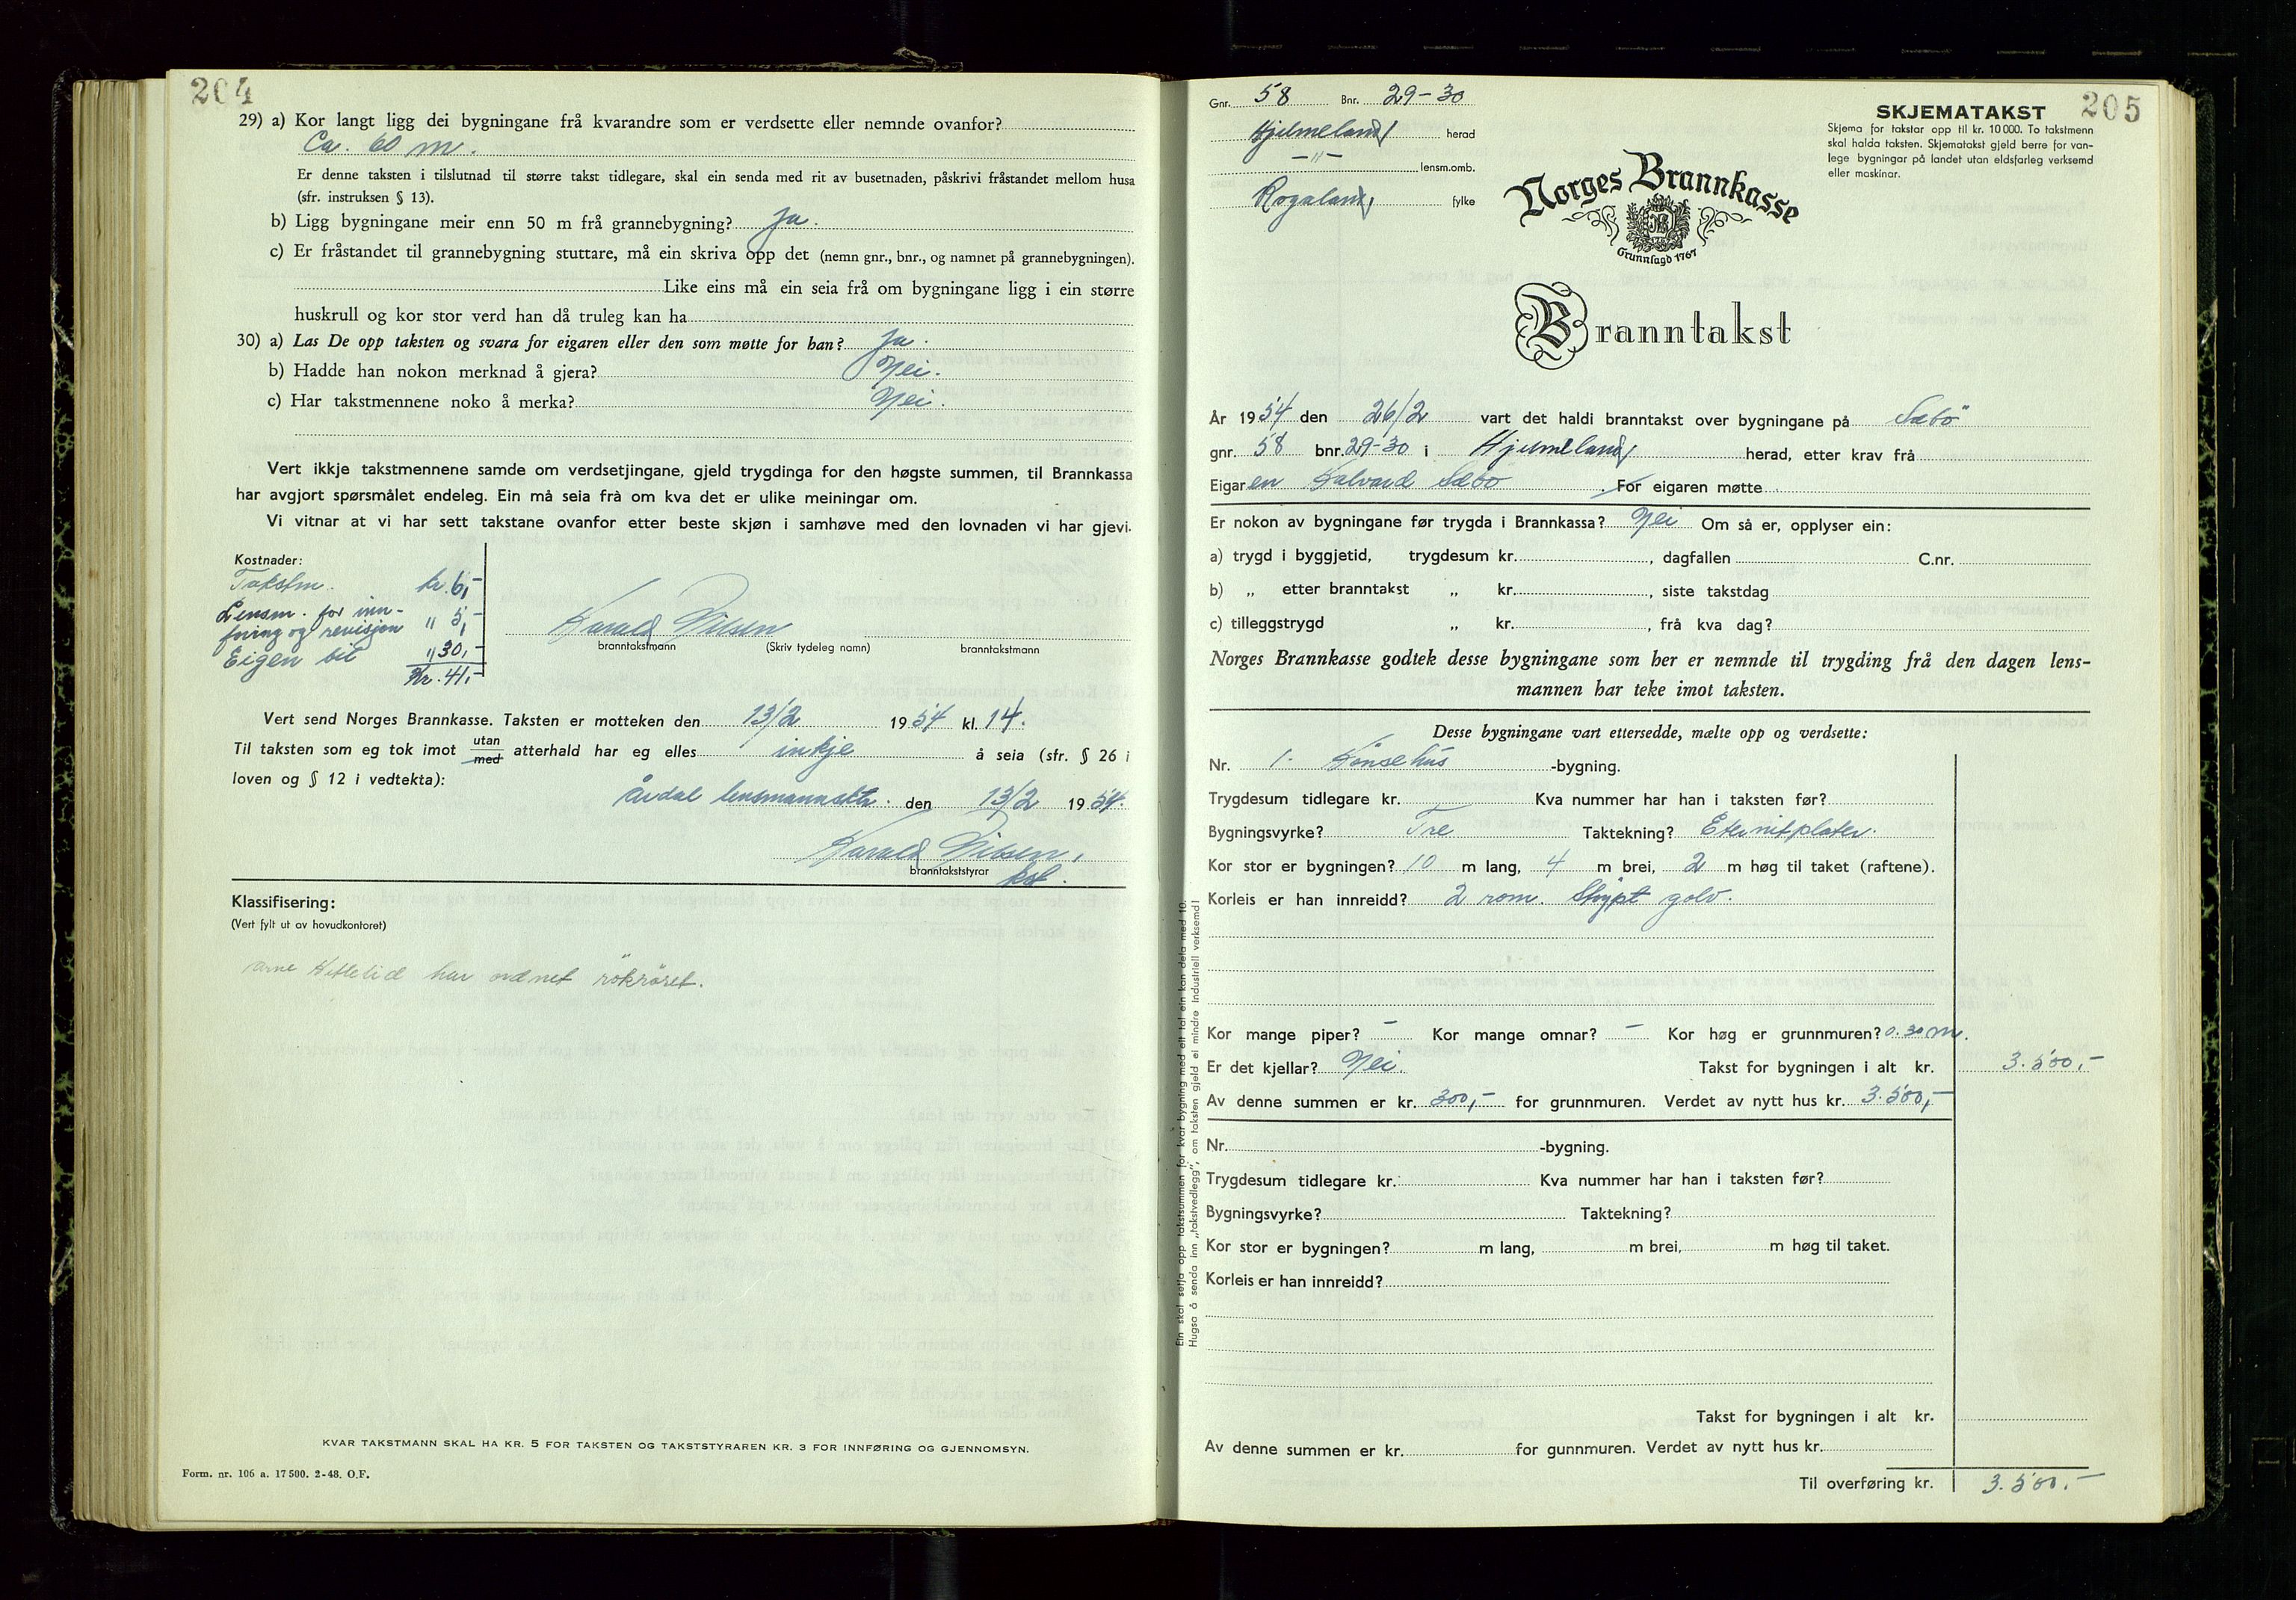 204
29) a) Kor langt ligg dei bygningane frå kvarandre som er verdsette eller nemnde ovanfor?
Ca. 60 m.
Er denne taksten i tilslutnad til større takst tidlegare, skal ein senda med rit av busetnaden, påskrivi fråstandet mellom husa
(sfr. instruksen § 13).
b) Ligg bygningane meir enn 50 m frå grannebygning? Ja.
c) Er fråstandet til grannebygning stuttare, må ein skriva opp det (nemn gnr., bnr., og namnet på grannebygningen).
Like eins må ein seia frå om bygningane ligg i ein større
huskrull og kor stor verd han då truleg kan ha
30) a) Las De opp taksten og svara for eigaren eller den som møtte for han? Ja.
b) Hadde han nokon merknad å gjera? Nei.
c) Har takstmennene noko å merka? Nei.
Vert ikkje takstmennene samde om verdsetjingane, gjeld trygdinga for den høgste summen, til Brannkassa
har avgjort spørsmålet endeleg. Ein må seia frå om kva det er ulike meiningar om.
Vi vitnar at vi har sett takstane ovanfor etter beste skjøn i samhøve med den lovnaden vi har gjevi.
Kostnader:
Takstm. kr. 6,-
Lensm. for inn-
føring og revisjon " 5,-
Eigen bil " 30,-
Kr. 41,-
Harald Nilsen
branntakstmann (Skriv tydeleg namn) branntakstmann
Vert send Norges Brannkasse. Taksten er motteken den 13/2 1954 kl. 14.
Til taksten som eg tok imot utan/med atterhald har eg elles inkje å seia (sfr. § 26 i
loven og § 12 i vedtekta):
Årdal lensmannsktr. den 13/2 1954.
Harald Nilsen,
branntakststyrar kst.
Klassifisering:
(Vert fylt ut av hovudkontoret)
Arne Kittelid har ordnet rökröret.
KVAR TAKSTMANN SKAL HA KR. 5 FOR TAKSTEN OG TAKSTSTYRAREN KR. 3 FOR INNFØRING OG GJENNOMSYN.
Form. nr. 106 a. 17500. 2-48. O.F.
205
Gnr. 58 Bnr. 29-30
Hjelmeland herad
-"- lensm.omb.
Rogaland, fylke
SKJEMATAKST
Skjema for takstar opp til kr. 10 000. To takstmenn
skal halda taksten. Skjematakst gjeld berre for van-
lege bygningar på landet utan eldsfarleg verksemd
eller maskinar.
Norges Brannkasse
Grunnlagd 1767
Branntakst
År 1954 den 26/2 vart det haldi branntakst over bygningane på Sæbö
gnr. 58 bnr. 29-30 i Hjelmeland herad, etter krav frå
Eigaren Halvard Sæbö. For eigaren møtte
Er nokon av bygningane før trygda i Brannkassa? Nei Om så er, opplyser ein:
a) trygd i byggjetid, trygdesum kr. , dagfallen C.nr.
b) „ etter branntakst „ kr. , siste takstdag
c) tilleggstrygd „ kr. , frå kva dag?
Norges Brannkasse godtek desse bygningane som her er nemnde til trygding frå den dagen lens-
mannen har teke imot taksten.
Desse bygningane vart ettersedde, mælte opp og verdsette:
Nr. 1. Hönsehus -bygning.
Trygdesum tidlegare kr. Kva nummer har han i taksten før?
Bygningsvyrke? Tre Taktekning? Eternitplater.
Kor stor er bygningen? 10 m lang, 4 m brei, 2 m høg til taket (raftene).
Korleis er han innreidd? 2 rom. Støypt golv.
Kor mange piper? - Kor mange omnar? - Kor høg er grunnmuren? 0.30 m.
Er det kjellar? Nei. Takst for bygningen i alt kr. 3.500,-
Av denne summen er kr. 300,- for grunnmuren. Verdet av nytt hus kr. 3.500,-
Nr. -bygning.
Trygdesum tidlegare kr. Kva nummer har han i taksten før?
Bygningsvyrke? Taktekning?
Kor stor er bygningen? m lang, m brei, m høg til taket.
Korleis er han innreidd?
Takst for bygningen i alt kr.
Av denne summen er kr. for gunnmuren. Verdet av nytt hus kr.
Til overføring kr. 3.500.-
Ein skal setja opp takstsummen for kvar bygning med eit tal ein kan dela med 10.
Hugsa å senda inn „takstvedlegg", om taksten gjeld ei mindre industriell verksemd!